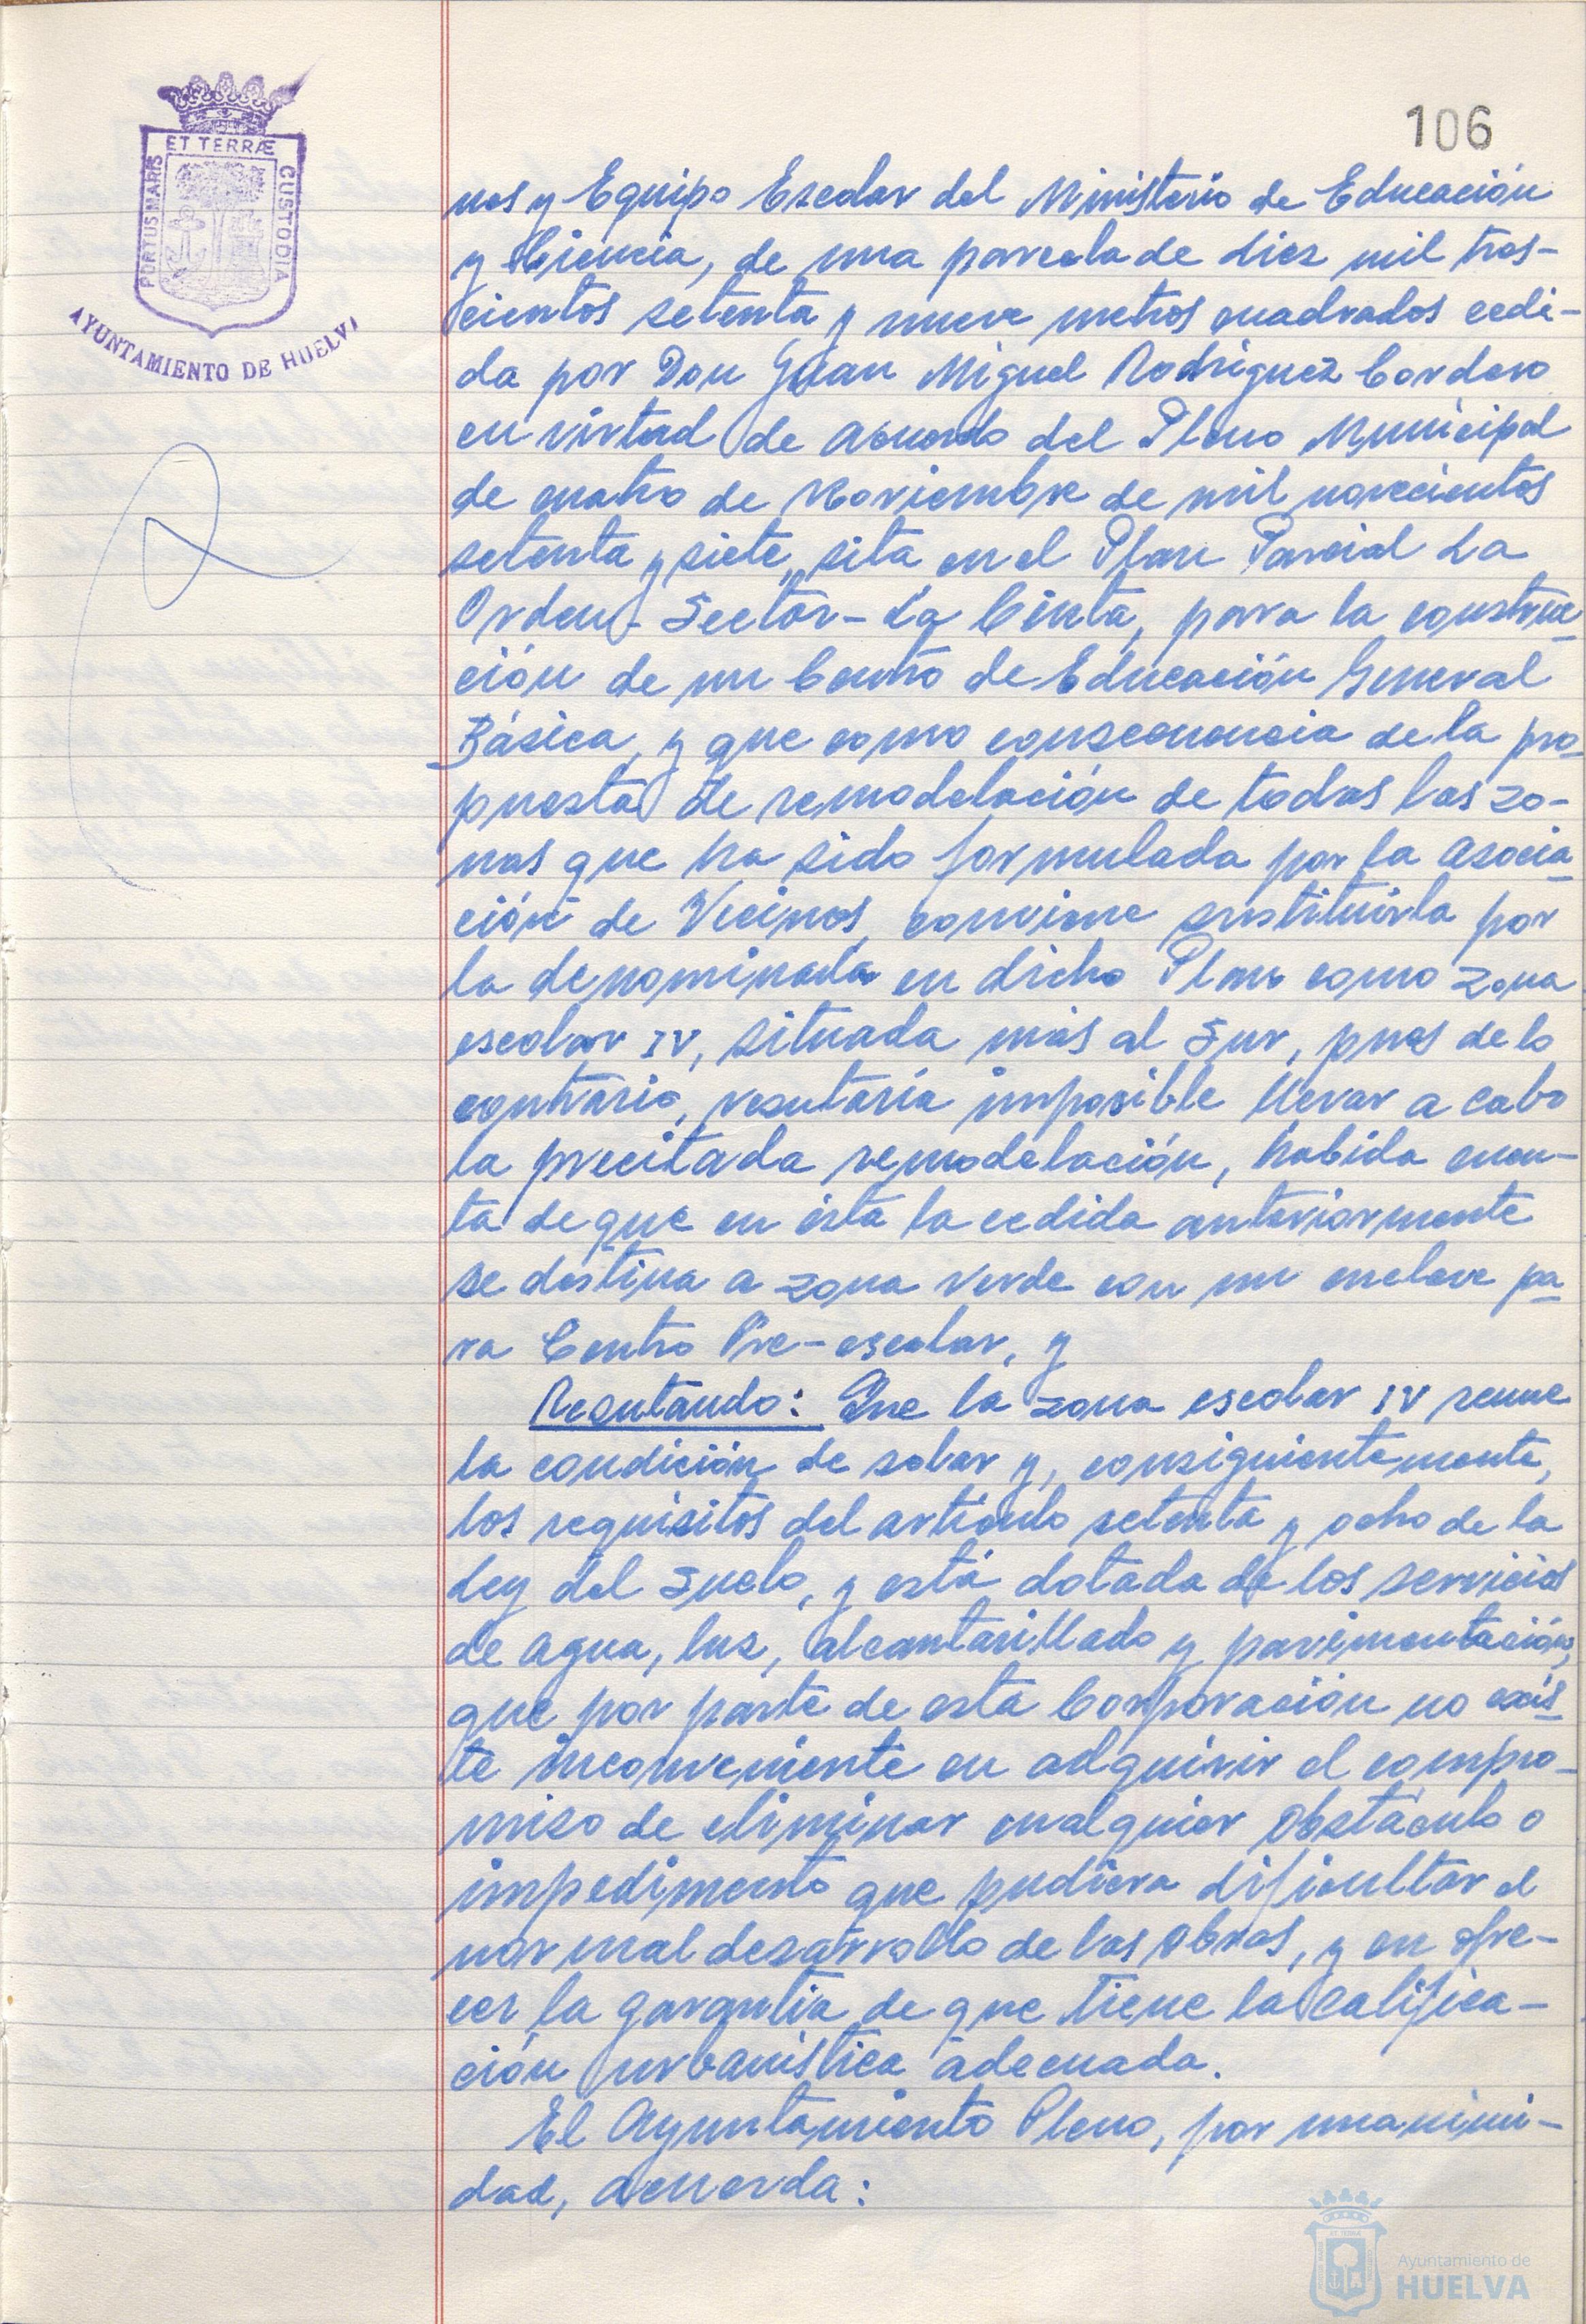 106
ET TERRÆ
PORTUS MARIS
CUSTODIA
AYUNTAMIENTO DE HUELVA
nes y Equipo Escolar del Ministerio de Educación
y Ciencia, de una parcela de diez mil tres-
cientos setenta y nueve metros cuadrados cedi-
da por Don Juan Miguel Rodriguez Cordero
en virtud de acuerdo del Pleno Municipal
de cuatro de Noviembre de mil novecientos
setenta y siete, sita en el Plan Parcial La
Orden-Sector-La Cinta, para la construc-
ción de un Centro de Educación General
Básica, y que como consecuencia de la pro-
puesta de remodelación de todas las zo-
nas que ha sido formulada por la asocia-
ción de Vecinos, conviene sustituirla por
la denominada en dicho Plano como zona
escolar IV, situada más al Sur, pues de lo
contrario, resutaría imposible llevar a cabo
la precitada remodelación, habida cuen-
ta de que en ésta la cedida anteriormente
se destina a zona verde con un enclave pa-
ra Centro Pre-escolar, y
Resutando: Que la zona escolar IV reune
la condición de solar y, consiguientemente,
los requisitos del artículo setenta y ocho de la
Ley del Suelo, y está dotada de los servicios
de agua, luz, alcantarillado y pavimentación,
que por parte de esta Corporación no exis-
te inconveniente en adquirir el compro-
miso de eliminar cualquier obstáculo o
impedimento que pudiera dificultar el
normal desarrollo de las obras, y en ofre-
cer la garantía de que tiene la califica-
ción urbanística adecuada.
El Ayuntamiento Pleno, por unanimi-
dad, acuerda:
Ayuntamiento de
HUELVA